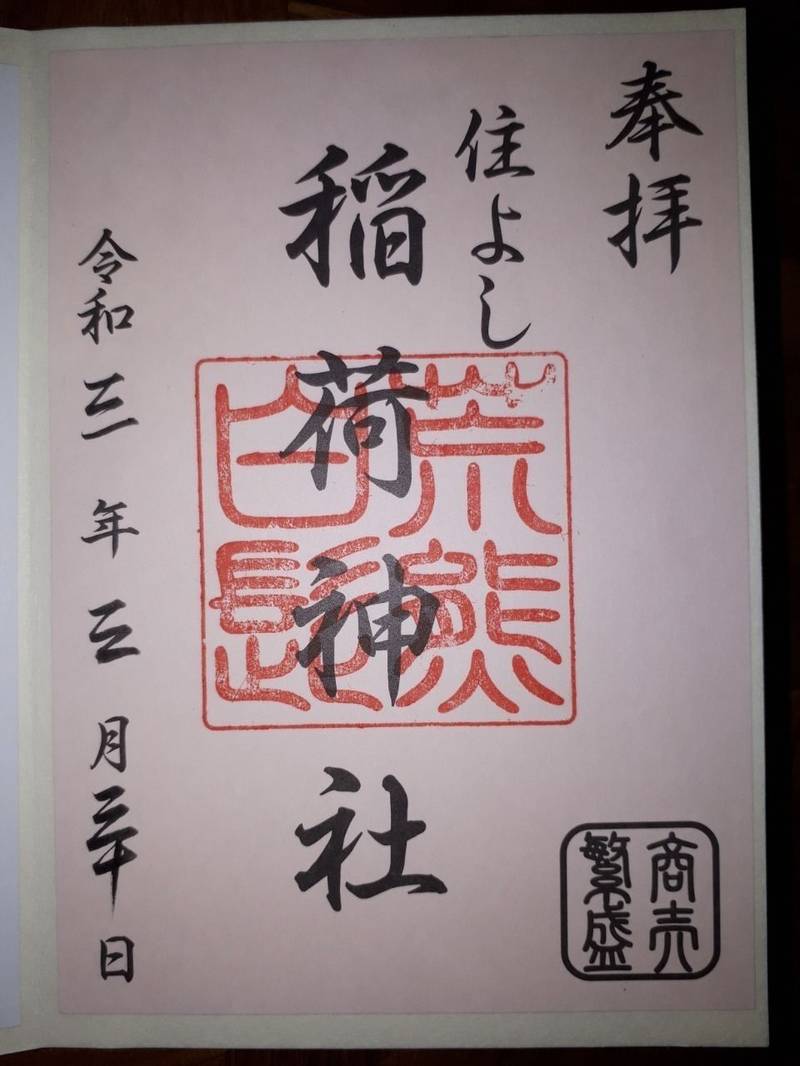 奉拝
住よし
稲荷神社
荒熊
白髭
令和三年三月三十日
商売
繁盛